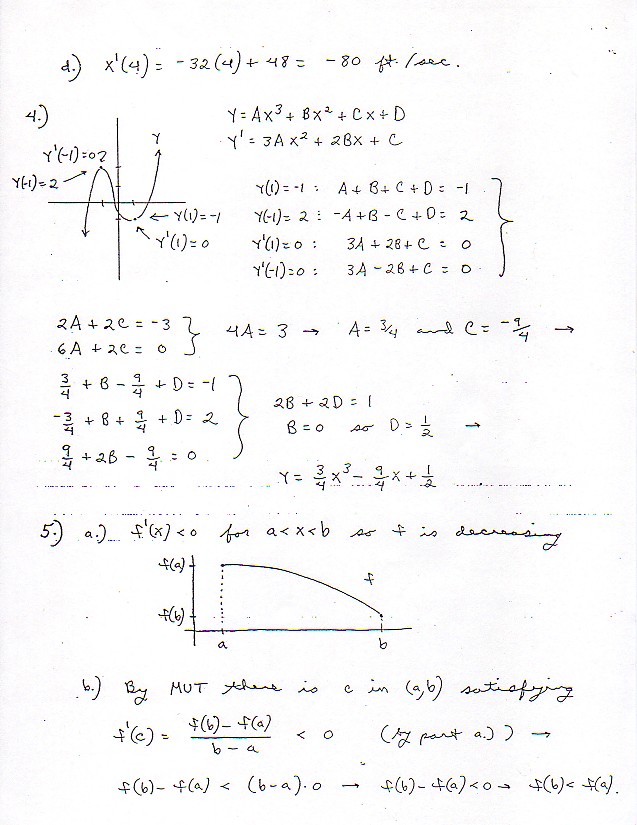 d.) x'(4) = -32(4) + 48 = -80 ft./sec.
4.)
Y = Ax³ + Bx² + Cx + D
Y' = 3Ax² + 2Bx + C
Y
Y'(-1)=0 2
Y(-1)=2
Y(1)=-1
Y'(1)=0
Y(1)=-1 : A+B+C+D = -1
Y(-1)=2 : -A+B-C+D = 2
Y'(1)=0 : 3A+2B+C = 0
Y'(-1)=0 : 3A-2B+C = 0
2A + 2C = -3
6A + 2C = 0
4A = 3 → A = 3/4 and C = -9/4 →
3/4 + B - 9/4 + D = -1
-3/4 + B + 9/4 + D = 2
9/4 + 2B - 9/4 = 0
2B + 2D = 1
B = 0 so D = 1/2 →
Y = 3/4 x³ - 9/4 x + 1/2
5.) a.) f'(x) < 0 for a<x<b so f is decreasing
f(a)
f
f(b)
a b
b.) By MVT there is c in (a,b) satisfying
f'(c) = (f(b) - f(a))/(b - a) < 0 (by part a.)) →
f(b) - f(a) < (b-a)·0 → f(b)-f(a)<0 → f(b)< f(a).